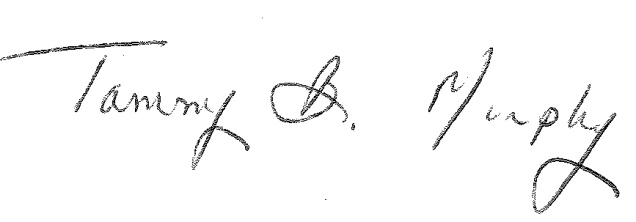 Tammy B. Murphy